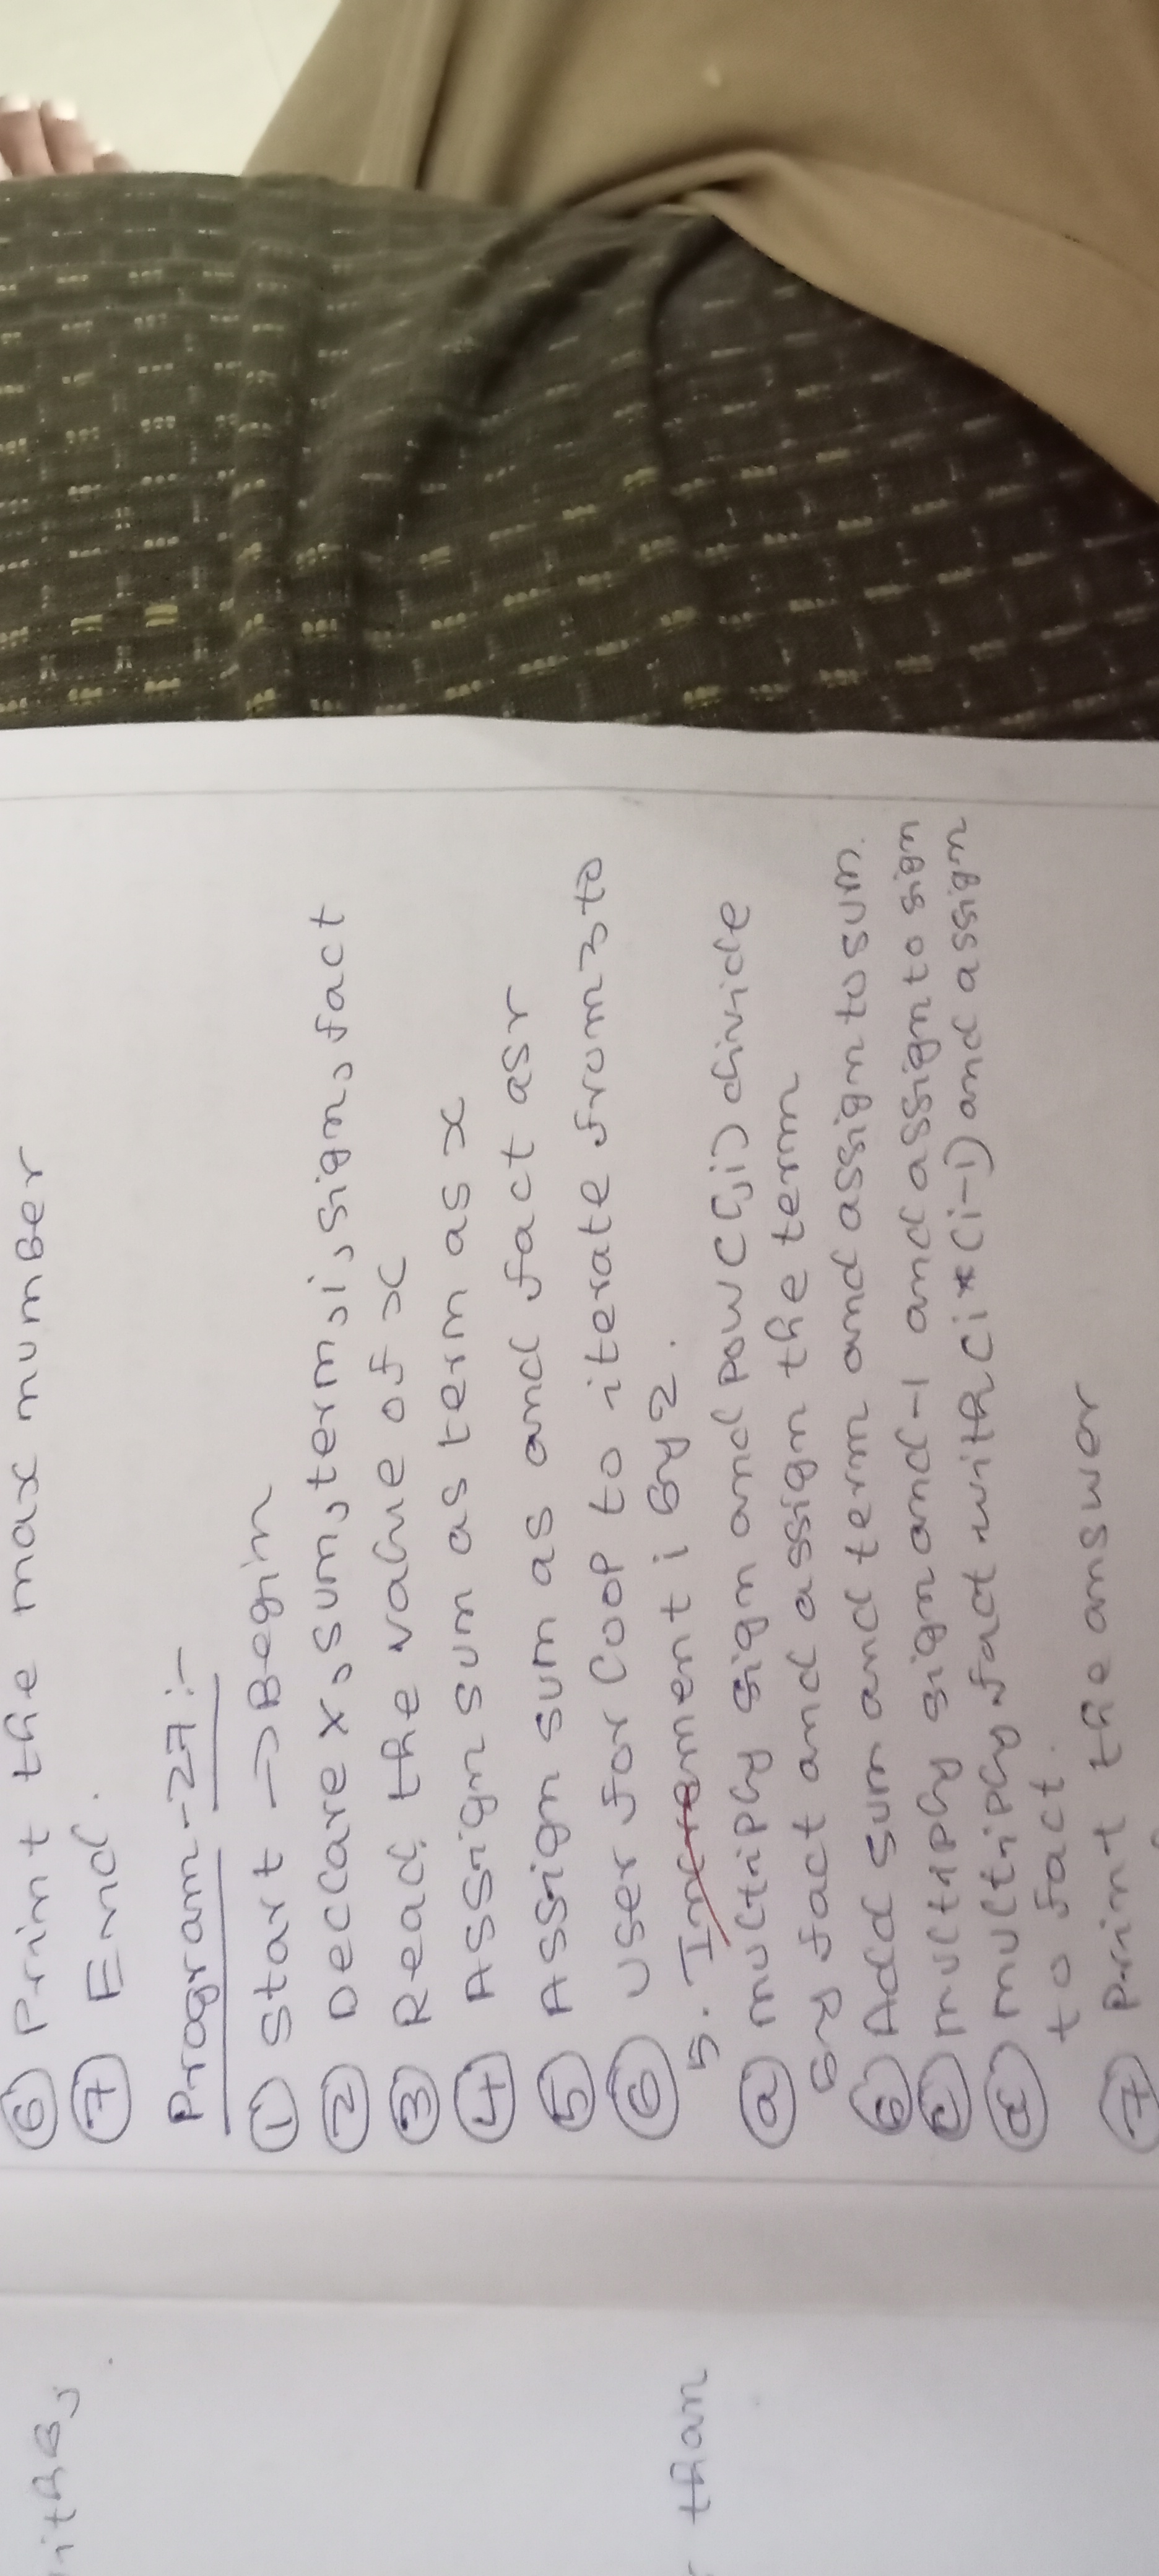 ⑥ Print the max number
⑦ End.
Program-27:-
① Start → Begin
② Declare x, sum, term, i, sign, fact
③ Read the value of x
④ Assign sum as term as x
⑤ Assign sum as and fact as r
⑥ User for loop to iterate from 3 to
5. Increment i by 2.
ⓐ multiply sign and pow(,i) divide
by fact and assign the term
ⓑ Add sum and term and assign to sum.
ⓒ multiply sign and -1 and assign to sign
ⓓ multiply fact with (i*(i-1) and assign
to fact.
⑦ Print the answer
than